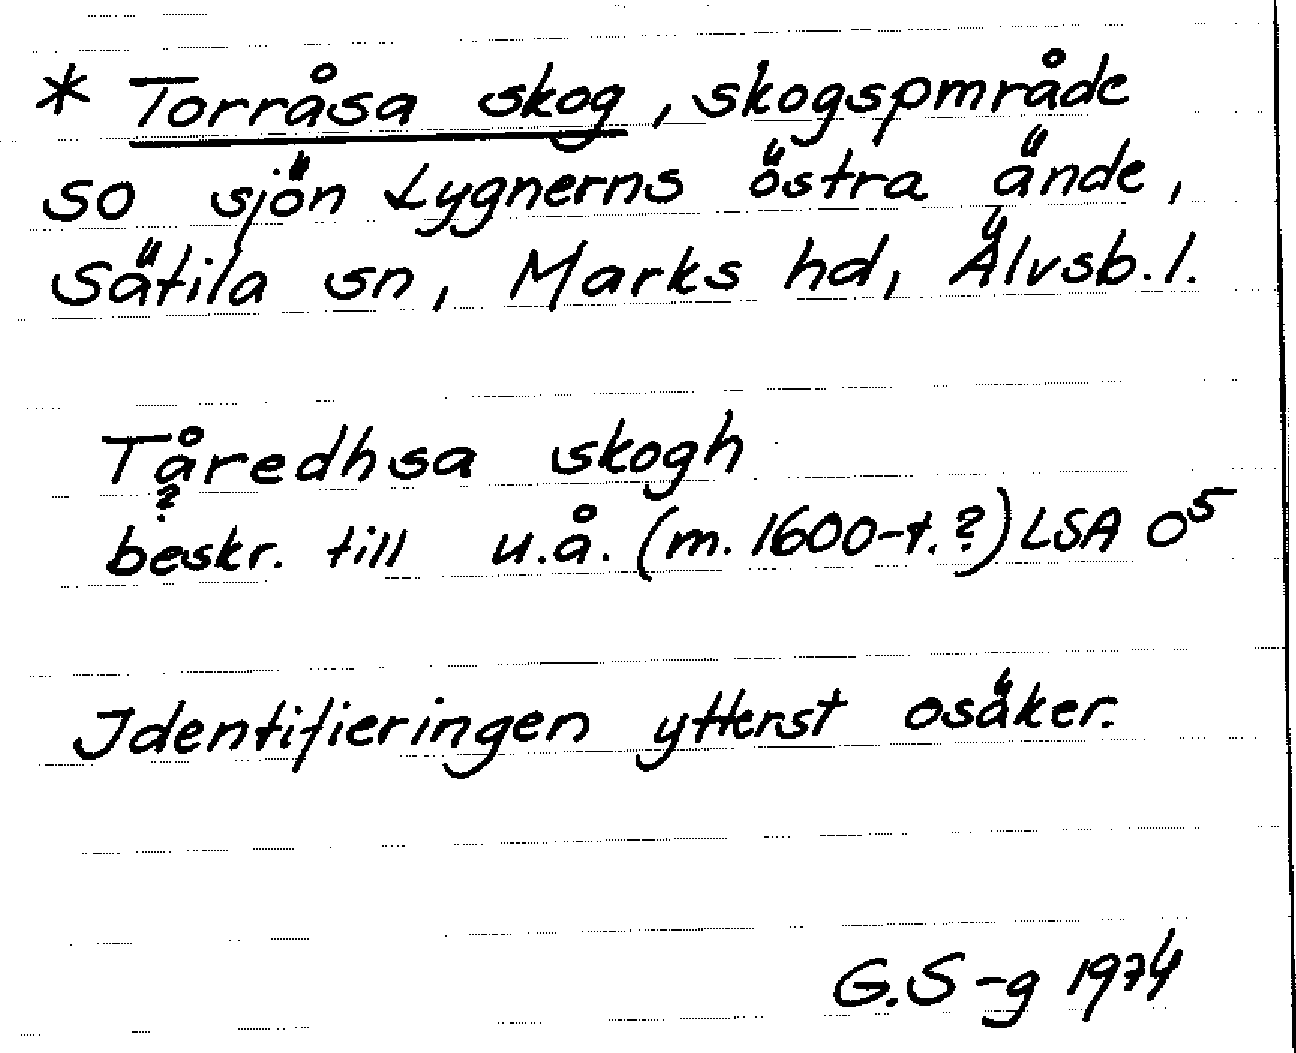 * Torråsa skog, skogspmråde
SO sjön Lygnerns östra ände,
Sätila sn, Marks hd, Älvsb. l.
Tåredhsa skogh
?
beskr. till u.å. (m. 1600-t.?) LSA O⁵
Identifieringen ytterst osäker.
G.S-g 1974